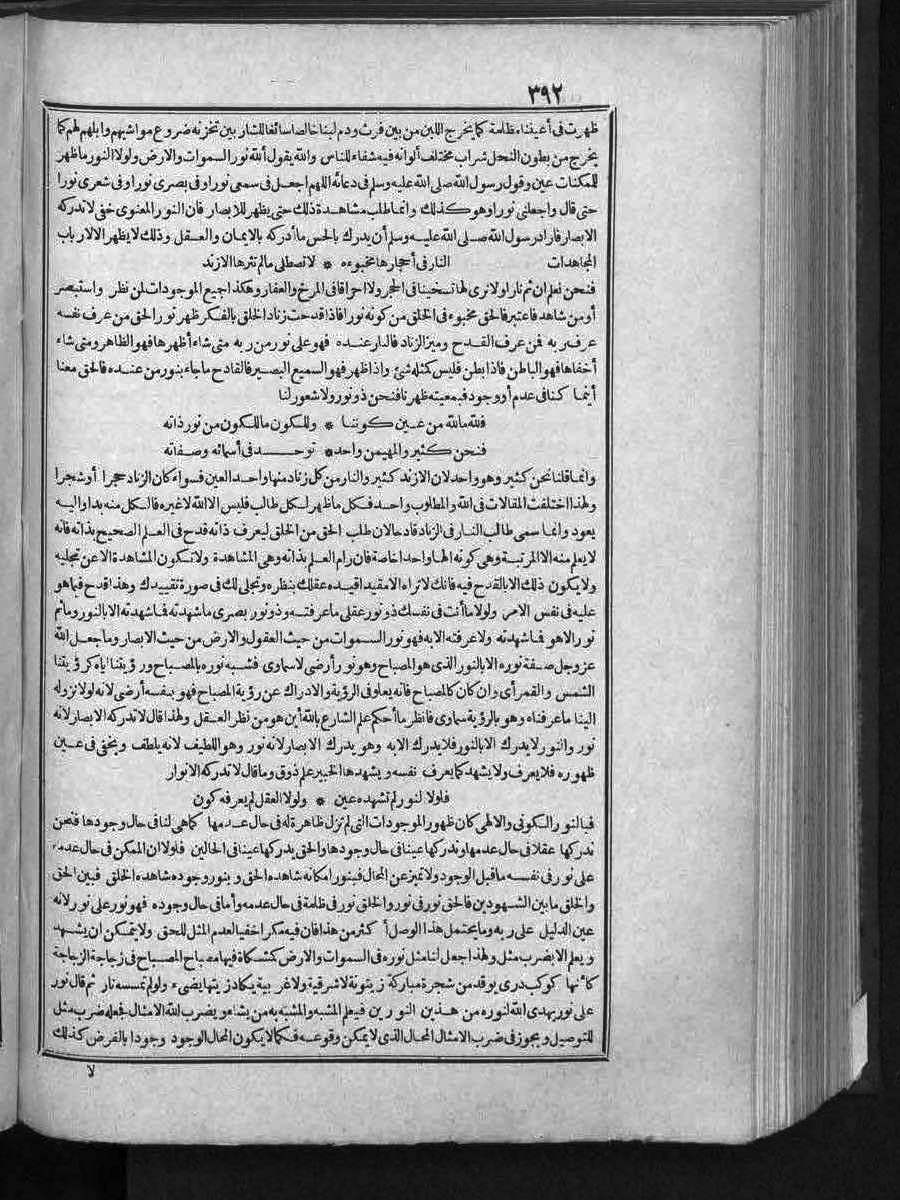 ٣٩٢
ظهرت في أعيننا مظلمة كما يخرج اللبن من بين فرث ودم لبنا خالصا سائغا للشاربين تخزنه ضروع مواشيهم وابلهم لهم كما
يخرج من بطون النحل شراب مختلف ألوانه فيه شفاء للناس والله يقول ألله نور السموات والارض ولولا النور ما ظهر
للمكنات عين وقول رسول الله صلى الله عليه وسلم في دعائه اللهم اجعل في سمعي نورا وفي بصري نورا وفي شعري نورا
حتى قال واجعلني نورا وهو كذلك وانما طلب مشاهدة ذلك حتى يظهر للابصار فان النور المعنوي خفي لا تدركه
الابصار فاراد رسول الله صلى الله عليه وسلم أن يدرك بالحس ما أدركه بالايمان والعقل وذلك لا يظهر الا لارباب
المجاهدات النار في أحجارها مخبوءه * لا تصطلى ما لم تثرها الازند
فنحن نعلم ان ثم نارا ولا نرى لها تسخينا في الحجر ولا احراقا في المرخ والعفار وهكذا جميع الموجودات لمن نظر واستبصر
أو من شاهد فاعتبر فالحق مخبوء في الخلق من كونه نورا فاذا قدحت زناد الخلق بالفكر ظهر نور الحق من عرف نفسه
عرف ربه فمن عرف القدح وميز الزناد فالنار عنده فهو على نور من ربه متى شاء أظهرها فهو الظاهر ومتى شاء
أخفاها فهو الباطن فاذا بطن فليس كمثله شئ واذا ظهر فهو السميع البصير فالقادح ما جاء بنور من عنده فالحق معنا
أينما كنا في عدم أو وجود فبمعيته ظهرنا فنحن ذو نور ولا شعور لنا
فلله ما لله من عين كوننا * وللكون ما للكون من نور ذاته
فنحن كثير والمهيمن واحد * توحد في أسمائه وصفاته
وانما قلنا نحن كثير وهو واحد لان الازند كثير والنار من كل زناد منها واحد العين فسواء كان الزناد حجرا أو شجرا
ولهذا اختلفت المقالات في الله والمطلوب واحد فكل ما ظهر لكل طالب فليس الا الله لا غيره فالكل منه بدا واليه
يعود وانما سمى طالب النار في الزناد قادحا لان طلب الحق من الخلق ليعرف ذاته قدح في العلم الصحيح بذاته فانه
لا يعلم منه الا المرتبة وهي كونه الها واحدا خاصة فان رام العلم بذاته وهي المشاهدة ولا تكون المشاهدة الا عن تجليه
ولا يكون ذلك الا بالقدح فيه فانك لا تراه الا مقيدا قيده عقلك بنظره وتجلى لك في صورة تقييدك وهذا قدح فيما هو
عليه في نفس الامر ولولا ما أنت في نفسك ذو نور عقلي ما عرفته وذو نور بصري ما شهدته فما شهدته الا بالنور وما ثم
نور الا هو فما شهدته ولا عرفته الا به فهو نور السموات من حيث العقول والارض من حيث الابصار وما جعل الله
عز وجل صفة نوره الا بالنور الذي هو المصباح وهو نور أرضي لا سماوي فشبه نوره بالمصباح ورؤيتنا اياه كرؤيتنا
الشمس والقمر أي وان كان كالمصباح فانه يعلو في الرؤية والادراك عن رؤية المصباح فهو بنفسه أرضي لانه لولا نزوله
الينا ما عرفناه وهو بالرؤية سماوي فانظر ما أحكم علم الشارع بالله أين هو من نظر العقل ولهذا قال لا تدركه الابصار لانه
نور والنور لا يدرك الا بالنور فلا يدرك الا به وهو يدرك الابصار لانه نور وهو اللطيف لانه يلطف ويخفى في عين
ظهوره فلا يعرف ولا يشهد كما يعرف نفسه ويشهدها الخبير علم ذوق وما قال لا تدركه الانوار
فلولا النور لم تشهده عين * ولولا العقل لم يعرفه كون
فبالنور الكوني والالهي كان ظهور الموجودات التي لم تزل ظاهرة له في حال عدمها كما هي لنا في حال وجودها فنحن
ندركها عقلا في حال عدمها وندركها عينا في حال وجودها والحق يدركها عينا في الحالين فلولا ان الممكن في حال عدمه
على نور في نفسه ما قبل الوجود ولا تميز عن المحال فبنور امكانه شاهده الحق وبنور وجوده شاهده الخلق فبين الحق
والخلق ما بين الشهودين فالحق نور في نور والخلق نور في ظلمة في حال عدمه وأما في حال وجوده فهو نور على نور لانه
عين الدليل على ربه وما يحتمل هذا الوصل أكثر من هذا فان فيه مكرا خفيا لعدم المثل للحق ولا يتمكن ان يشهد
ويعلم الا بضرب مثل ولهذا جعل لنا مثل نوره في السموات والارض كمشكاة فيها مصباح المصباح في زجاجة الزجاجة
كأنها كوكب دري يوقد من شجرة مباركة زيتونة لا شرقية ولا غربية يكاد زيتها يضيء ولو لم تمسسه نار ثم قال نور
على نور يهدي الله لنوره من هذين النورين فيعلم المشبه والمشبه به من يشاء ويضرب الله الامثال فجعله ضرب مثل
للتوصيل ويجوز في ضرب الامثال المحال الذي لا يمكن وقوعه فكما لا يكون المحال الوجود وجودا بالفرض كذلك
لا